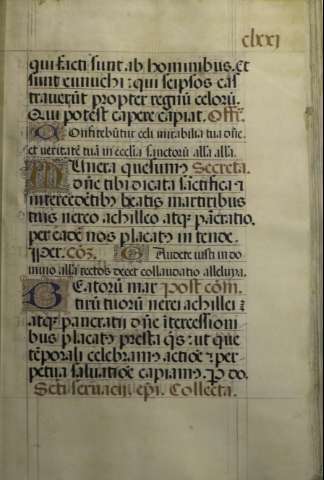 clxxj
qui facti sunt ab hominibus. et
sunt eunuchi: qui seipsos cas
trauerūt propter regnū celorū.
Qui potest capere capiat. Offr̄.
Confitebūtur celi mirabilia tua dn̄e.
et veritatē tuā in ecclīa sanctorū all'a all'a.
Munera quesumus Secreta.
dn̄e tibi dicata sāctifica ⁊
intercedētibus beatis martiribus
tuis nereo achilleo atq₃ pācratio.
per eadē nos placatus intende.
Per. Cōō. Gaudete iusti in do
mino all'a rectos decet collaudatio alleluya.
Beatorū mar post cōm̄.
tirū tuorū nerei achillei ⁊
atq₃ pancratii dn̄e ītercessioni
bus placatus presta q̄s: ut que
tēporali celebramus actiōe ⁊ per
petua saluatiōe capiamus. P̱ do.
Scti seruacij ep̄i. Collecta.